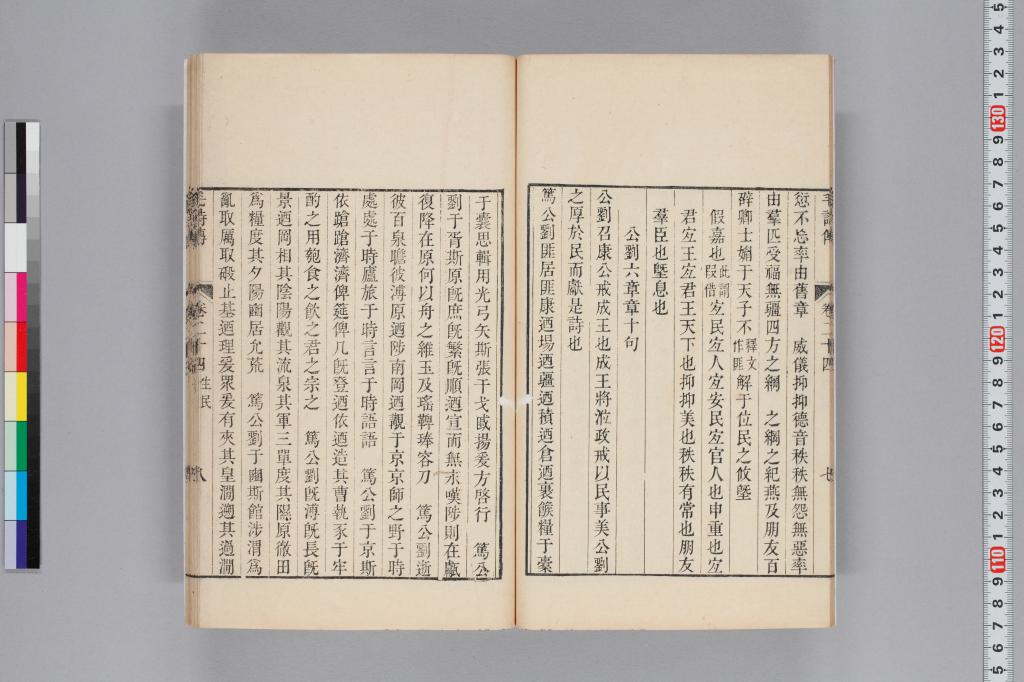 愆不忘率由舊章　威儀抑抑德音秩秩無怨無惡率
由羣匹受福無疆四方之綱　之綱之紀燕及朋友百
辟卿士媚于天子不釋文作匪解于位民之攸墍
假嘉也此謂叚借宜民宜人宜安民宜官人也申重也宜
君宜王宜君王天下也抑抑美也秩秩有常也朋友
羣臣也墍息也
公劉六章章十句
公劉召康公戒成王也成王將涖政戒以民事美公劉
之厚於民而獻是詩也
篤公劉匪居匪康迺場迺疆迺積迺倉迺裹餱糧于橐
于囊思輯用光弓矢斯張干戈戚揚爰方啓行　篤公
劉于胥斯原旣庶旣繁旣順迺宣而無永嘆陟則在巘
復降在原何以舟之維玉及瑤鞞琫容刀　篤公劉逝
彼百泉瞻彼溥原迺陟南岡迺覯于京京師之野于時
處處于時廬旅于時言言于時語語　篤公劉于京斯
依蹌蹌濟濟俾筵俾几旣登迺依迺造其曹執豕于牢
酌之用匏食之飮之君之宗之　篤公劉旣溥旣長旣
景迺岡相其陰陽觀其流泉其軍三單度其隰原徹田
爲糧度其夕陽豳居允荒　篤公劉于豳斯館涉渭爲
亂取厲取碫止基迺理爰眾爰有夾其皇澗遡其過澗
毛詩傳
卷二十四
七
毛詩傳
卷二十四　生民
八